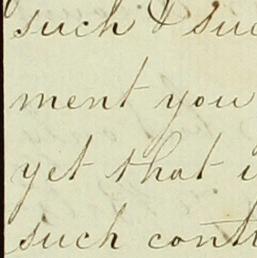 such & suc
ment you
yet that i
such cont